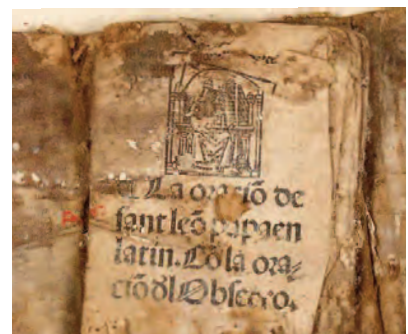 ¶ La oraciõ de
sant leõ papa en
latin. Cõ la ora⸗
ciõ ďl Obsecro.